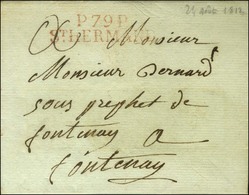 P79P
ST HERMAND
Monsieur
Monsieur Bernard
sous prephet de
fontenay a
fontenay